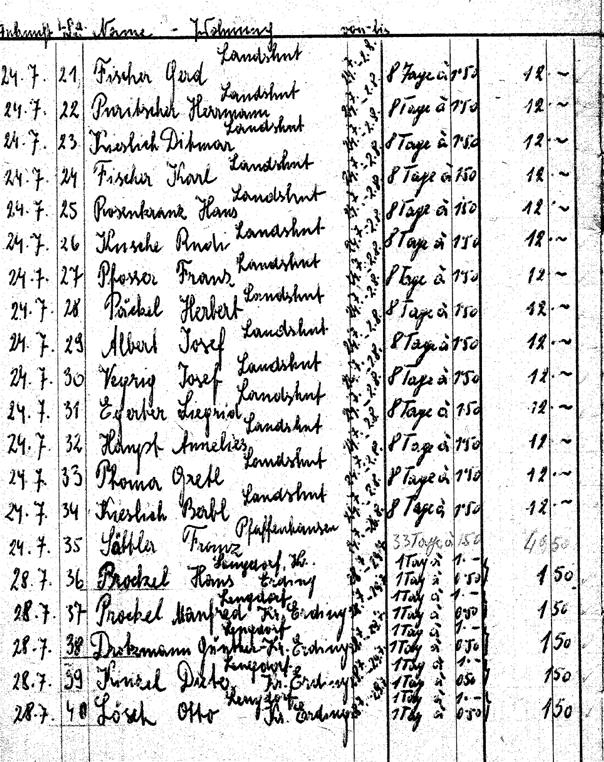 Ankunft Name - Wohnung von-bis
24.7. 21 Fischer Gerd Landshut 8 Tage à 1.50 12.~
24.7. 22 Puritscher Hermann Landshut 8 Tage à 1.50 12.~
24.7. 23 Kierlich Ditmar Landshut 8 Tage à 1.50 12.~
24.7. 24 Fischer Karl Landshut 8 Tage à 1.50 12.~
24.7. 25 Rosenkranz Hans Landshut 8 Tage à 1.50 12.~
24.7. 26 Kusche Rudi Landshut 8 Tage à 1.50 12.~
24.7. 27 Pfosser Franz Landshut 8 Tage à 1.50 12.~
24.7. 28 Päckel Herbert Landshut 8 Tage à 1.50 12.~
24.7. 29 Albert Josef Landshut 8 Tage à 1.50 12.~
24.7. 30 Veyrig Josef Landshut 8 Tage à 1.50 12.~
24.7. 31 Egerber Siegrid Landshut 8 Tage à 1.50 12.~
24.7. 32 Haupt Annelies Landshut 8 Tage à 1.50 12.~
24.7. 33 Phoma Gretl Landshut 8 Tage à 1.50 12.~
24.7. 34 Kierlich Berbl Landshut 8 Tage à 1.50 12.~
24.7. 35 Sättler Franz Pfaffenhausen 33 Tage à 1.50 49.50
28.7. 36 Prockel Hans Lengdorf, Kr. Erding 1 Tag à 1.-- 1 Tag à 0.50 1.50
28.7. 37 Prockel Manfred Lengdorf Kr. Erding 1 Tag à 1.-- 1 Tag à 0.50 1.50
28.7. 38 Dietzmann Günther Lengdorf Kr. Erding 1 Tag à 1.-- 1 Tag à 0.50 1.50
28.7. 39 Kinzel Dieter Lengdorf Kr. Erding 1 Tag à 1.-- 1 Tag à 0.50 1.50
28.7. 40 Lösch Otto Lengdorf Kr. Erding 1 Tag à 1.-- 1 Tag à 0.50 1.50